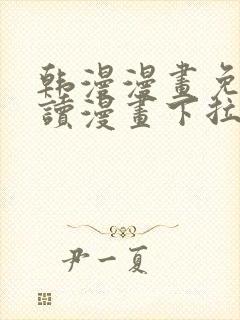 韩漫漫畫免
讀漫畫下拉
尹一夏